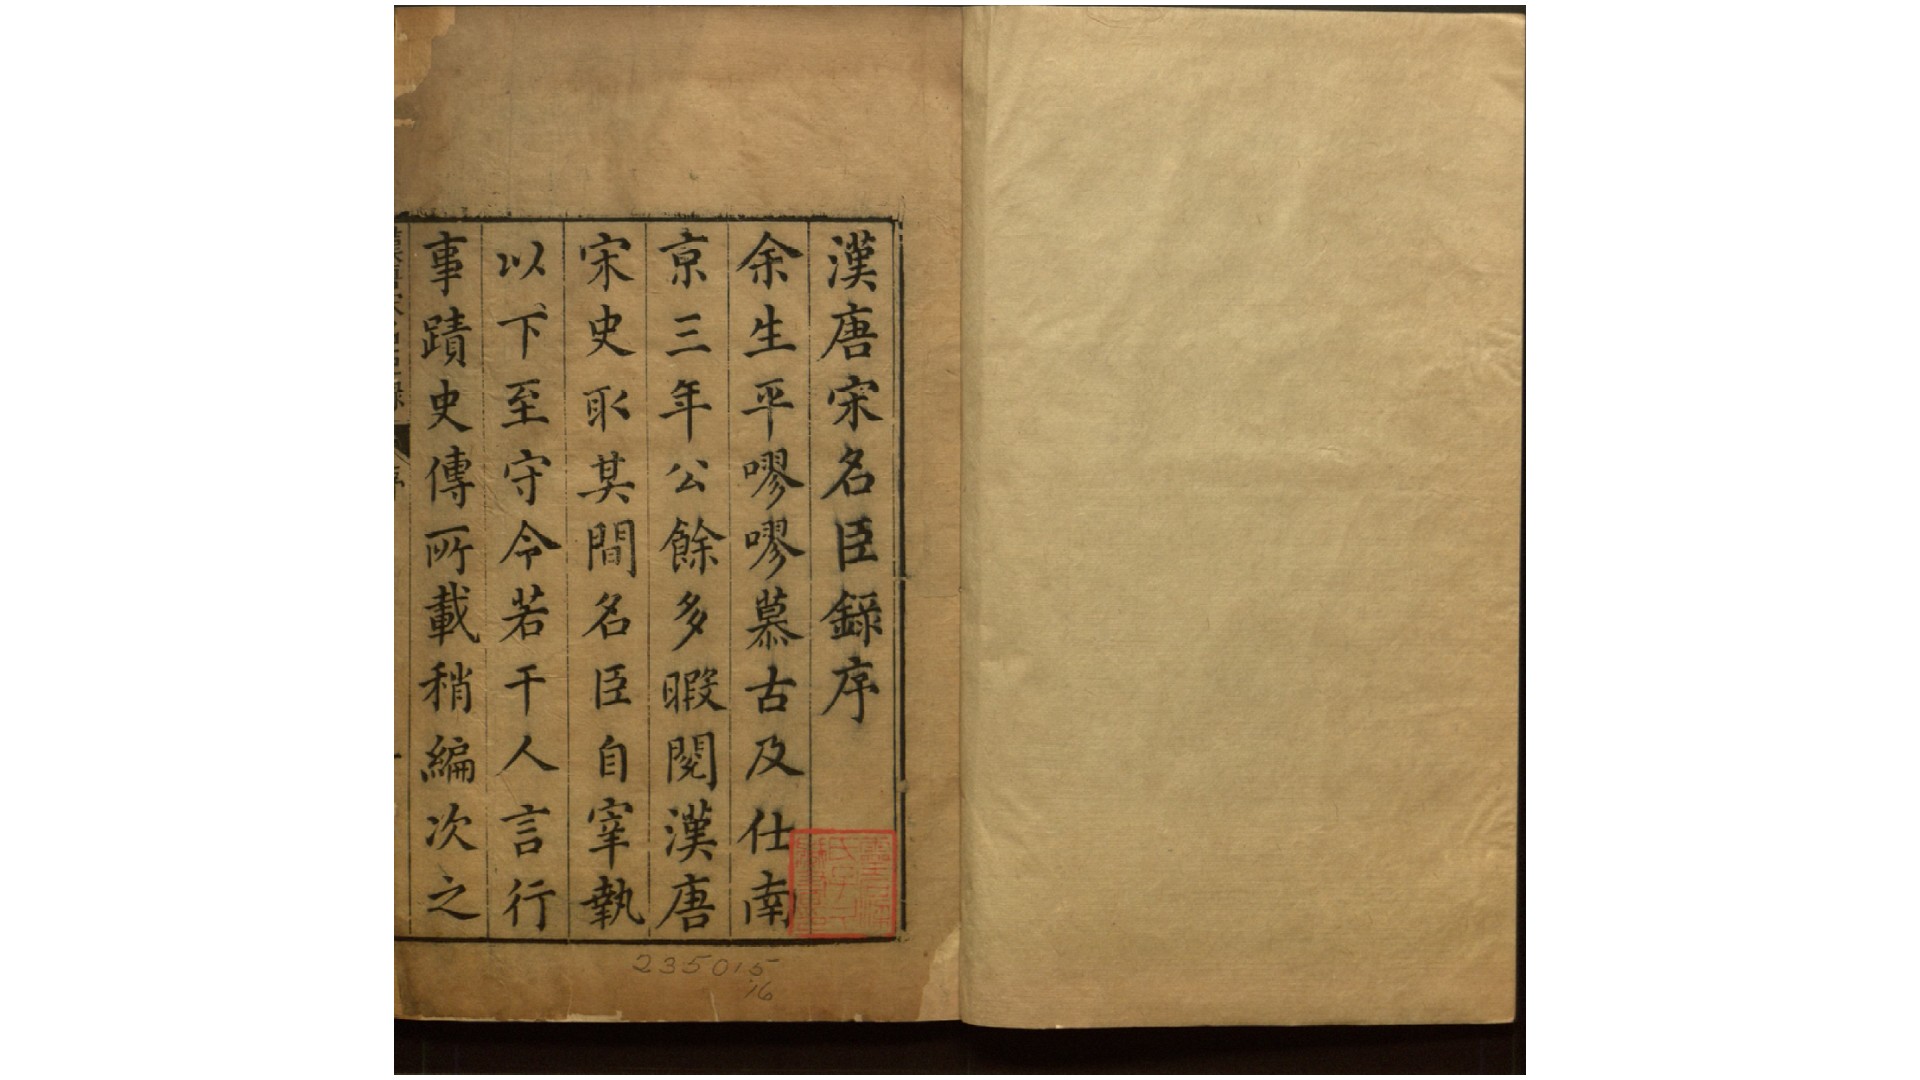 漢唐宋名臣錄序
余生平嘐嘐慕古及仕南
京三年公餘多暇閱漢唐
宋史取其間名臣自宰執
以下至守令若干人言行
事蹟史傳所載稍編次之
235015
16